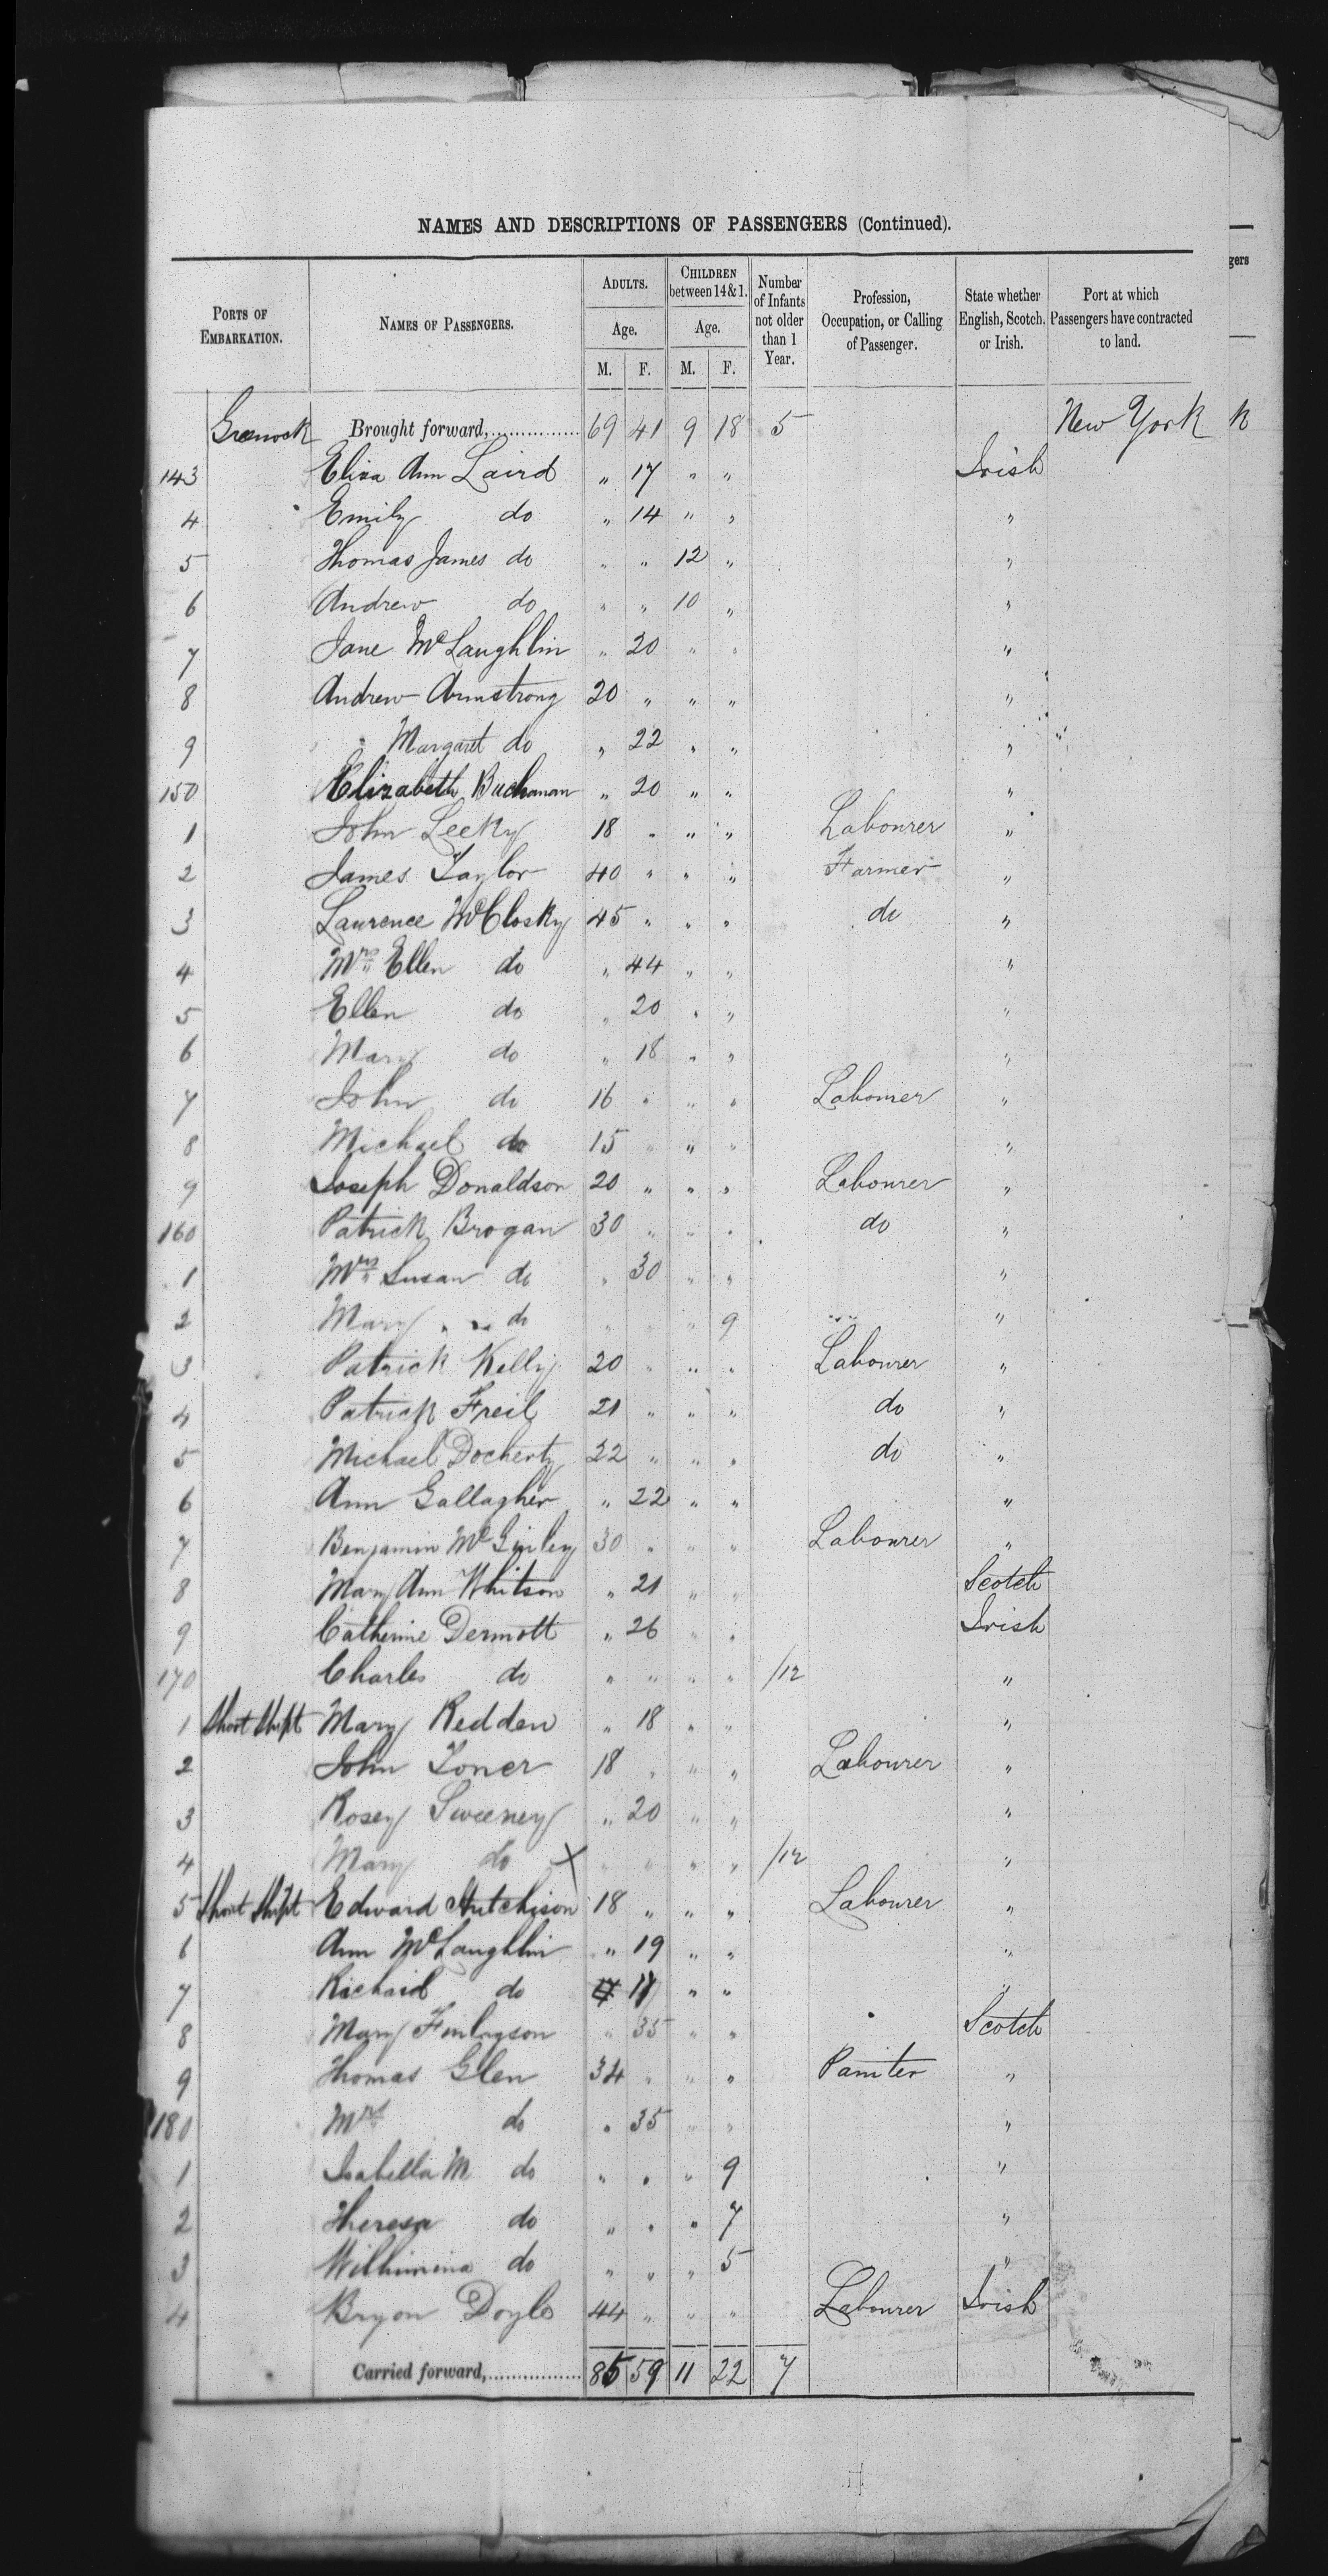 NAMES AND DESCRIPTIONS OF PASSENGERS (Continued).
PORTS OF EMBARKATION. NAMES OF PASSENGERS. ADULTS. Age. M. F. CHILDREN between 14 & 1. Age. M. F. Number of Infants not older than 1 Year. Profession, Occupation, or Calling of Passenger. State whether English, Scotch, or Irish. Port at which Passengers have contracted to land.
gers
Greenock Brought forward, 69 41 9 18 5 New York k
143 Eliza Ann Laird " 17 " " Irish
4 Emily do " 14 " " "
5 Thomas James do " " 12 " "
6 Andrew do " " 10 " "
7 Jane McLaughlin " 20 " " "
8 Andrew Armstrong 20 " " " "
9 Margaret do " 22 " " "
150 Elizabeth Buchanan " 20 " " "
1 John Lecky 18 " " " Labourer "
2 James Taylor 40 " " " Farmer "
3 Laurence McClosky 45 " " " do "
4 Mrs Ellen do " 44 " " "
5 Ellen do " 20 " " "
6 Mary do " 18 " " "
7 John do 16 " " " Labourer "
8 Michael do 15 " " " "
9 Joseph Donaldson 20 " " " Labourer "
160 Patrick Brogan 30 " " " do "
1 Mrs Susan do " 30 " " "
2 Mary do " " " 9 "
3 Patrick Kelly 20 " " " Labourer "
4 Patrick Freil 21 " " " do "
5 Michael Docherty 22 " " " do "
6 Ann Gallagher " 22 " " "
7 Benjamin McGinley 30 " " " Labourer "
8 Mary Ann Whitson " 21 " " Scotch
9 Catherine Dermott " 26 " " Irish
170 Charles do " " " " /12 "
1 Short Shipt Mary Redden " 18 " " "
2 John Toner 18 " " " Labourer "
3 Rosey Sweeney " 20 " " "
4 Mary do X " " " " /12 "
5 Short Shipt Edward Hutchison 18 " " " Labourer "
6 Ann McLaughlin " 19 " " "
7 Richard do 17 " " "
8 Mary Finlayson " 35 " " Scotch
9 Thomas Glen 34 " " " Painter "
180 Mrs do " 35 " " "
1 Isabella M do " " " 9 "
2 Theresa do " " " 7 "
3 Wilhimina do " " " 5 "
4 Bryon Doyle 44 " " " Labourer Irish
Carried forward, 85 59 11 22 7